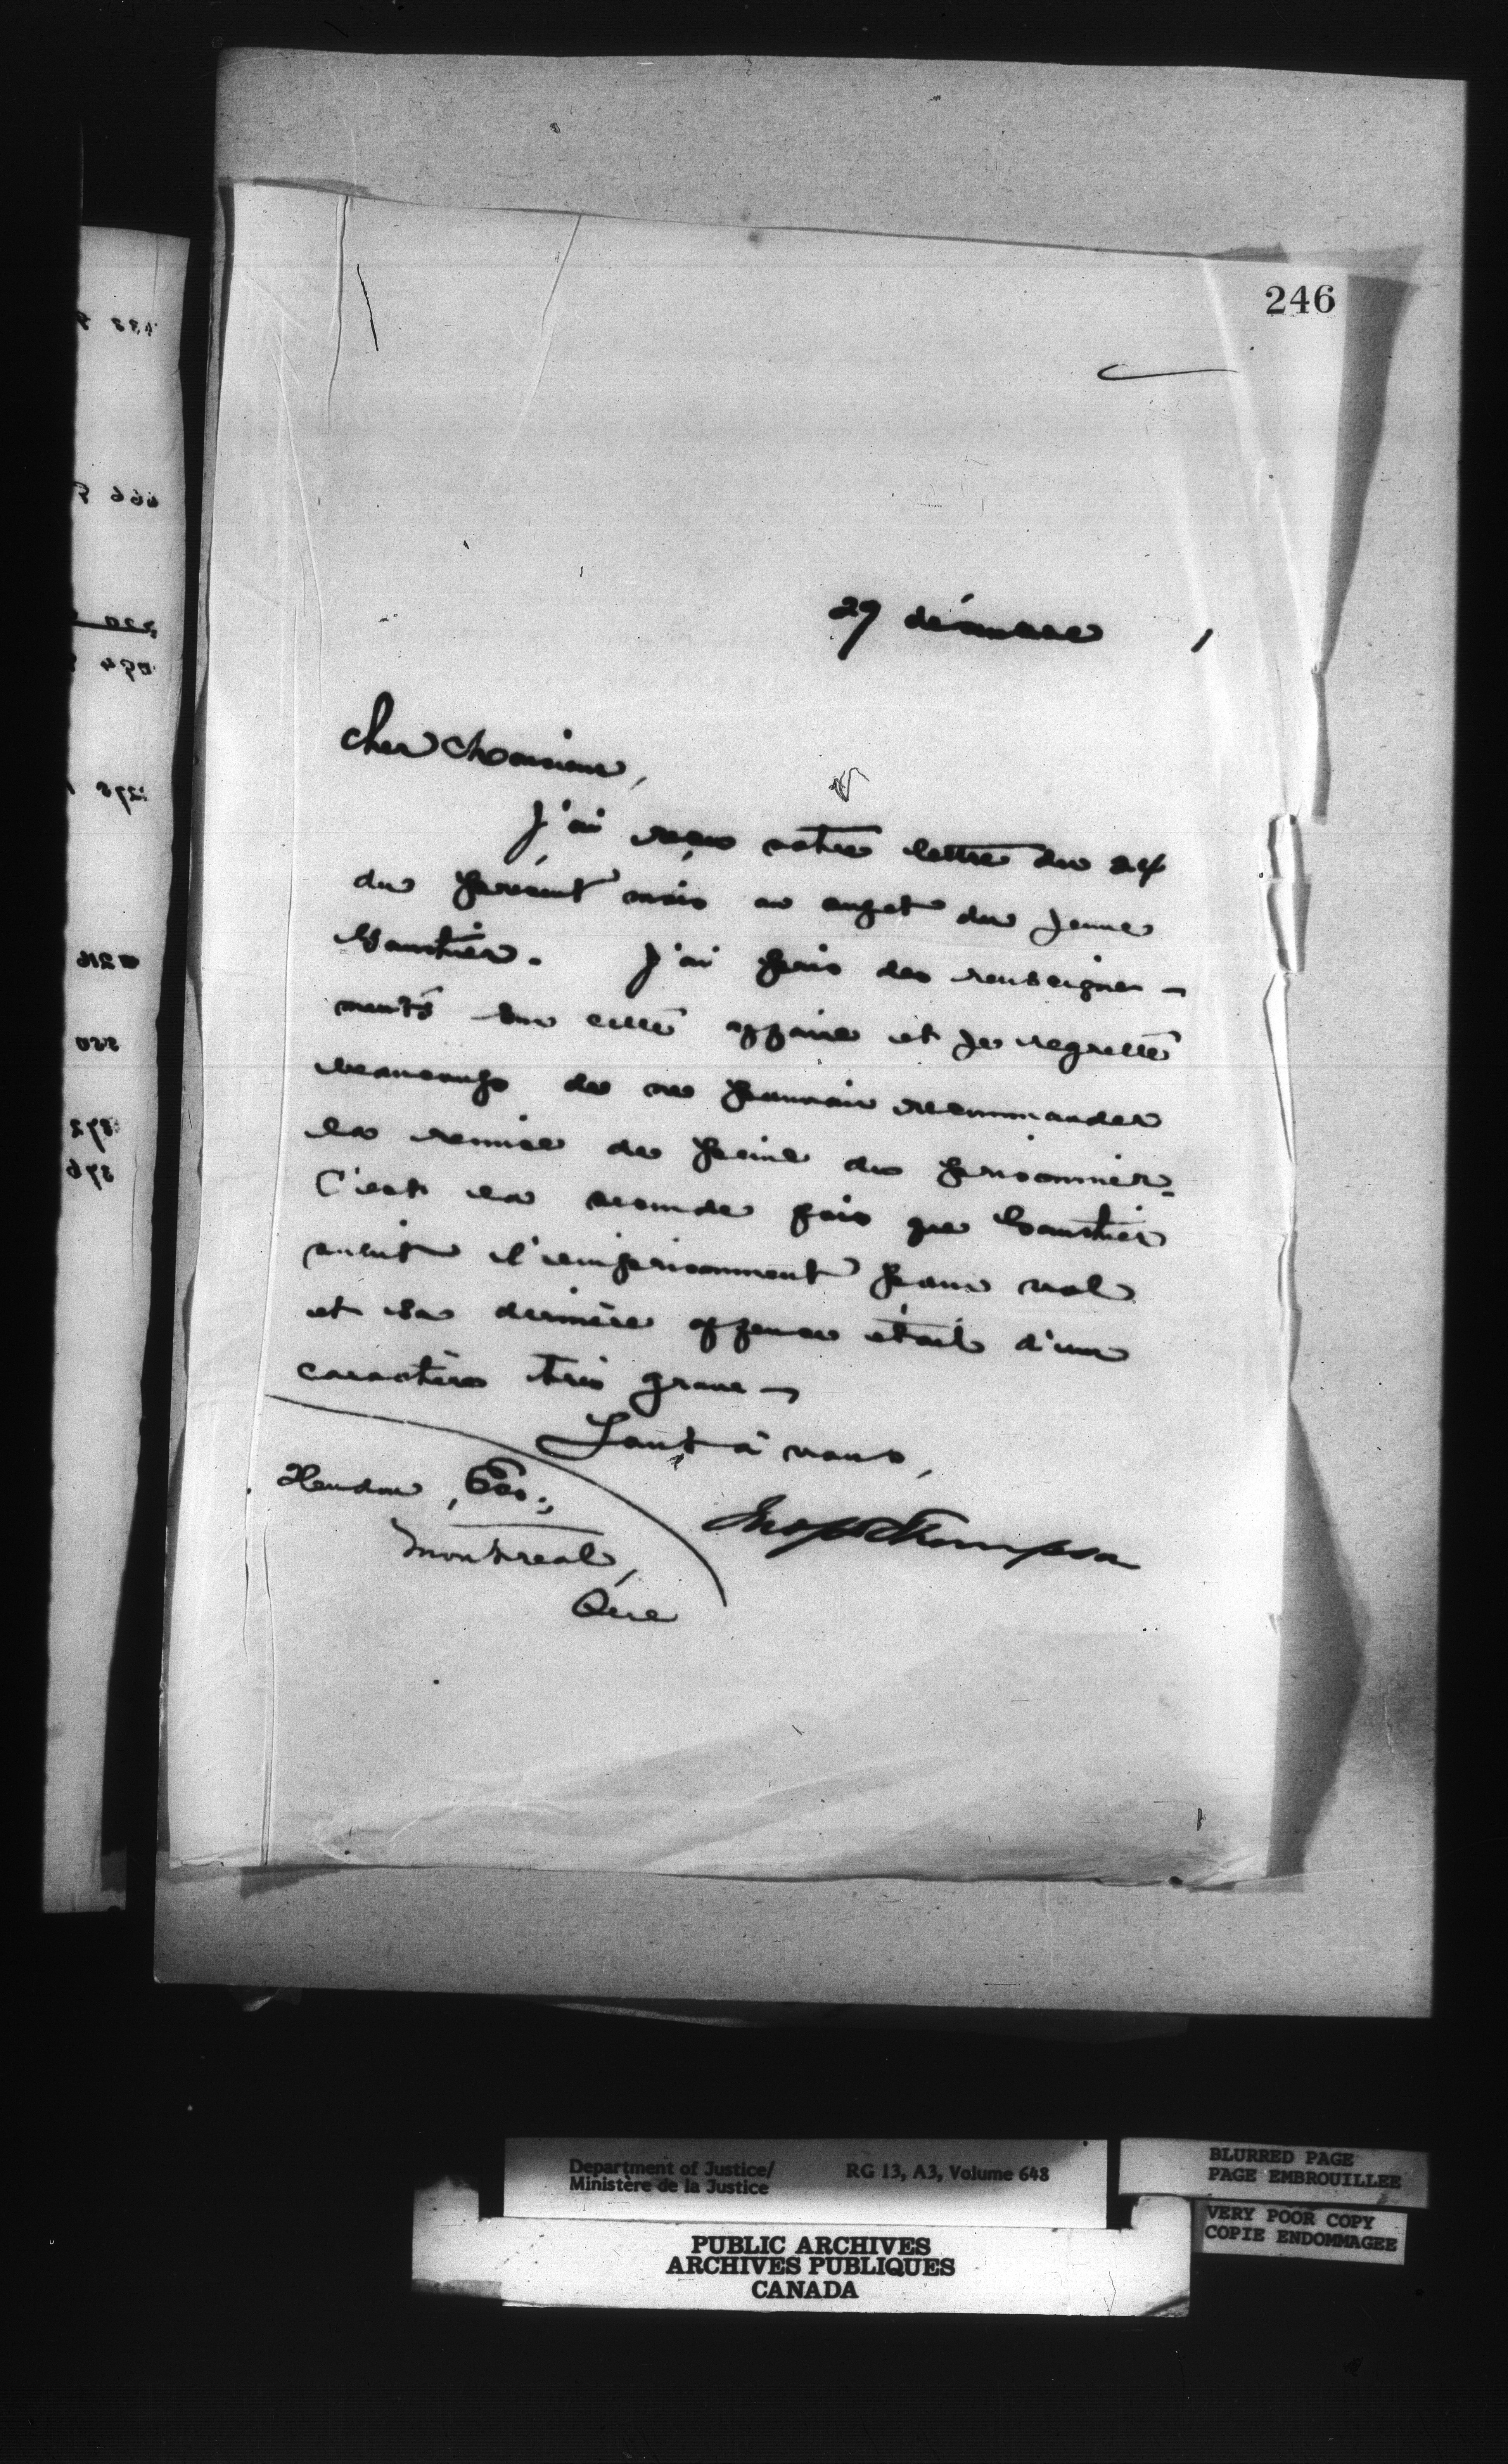 246
29 décembre
Cher Monsieur,
J'ai reçu votre lettre du 24
du présent mois au sujet du jeune
Gauthier. J'ai pris des renseigne-
ments sur cette affaire et je regrette
beaucoup de ne pouvoir recommander
la remise de peine du prisonnier.
C'est la seconde fois que Gauthier
subit l'emprisonnment pour vol
et sa dernière offense était d'un
caractère très grave-
Tout à vous,
Jno S D Thompson
Geo.,
Montreal,
Que
Department of Justice/ RG 13, A3, Volume 648
Ministère de la Justice
PUBLIC ARCHIVES
ARCHIVES PUBLIQUES
CANADA
BLURRED PAGE
PAGE EMBROUILLEE
VERY POOR COPY
COPIE ENDOMMAGEE